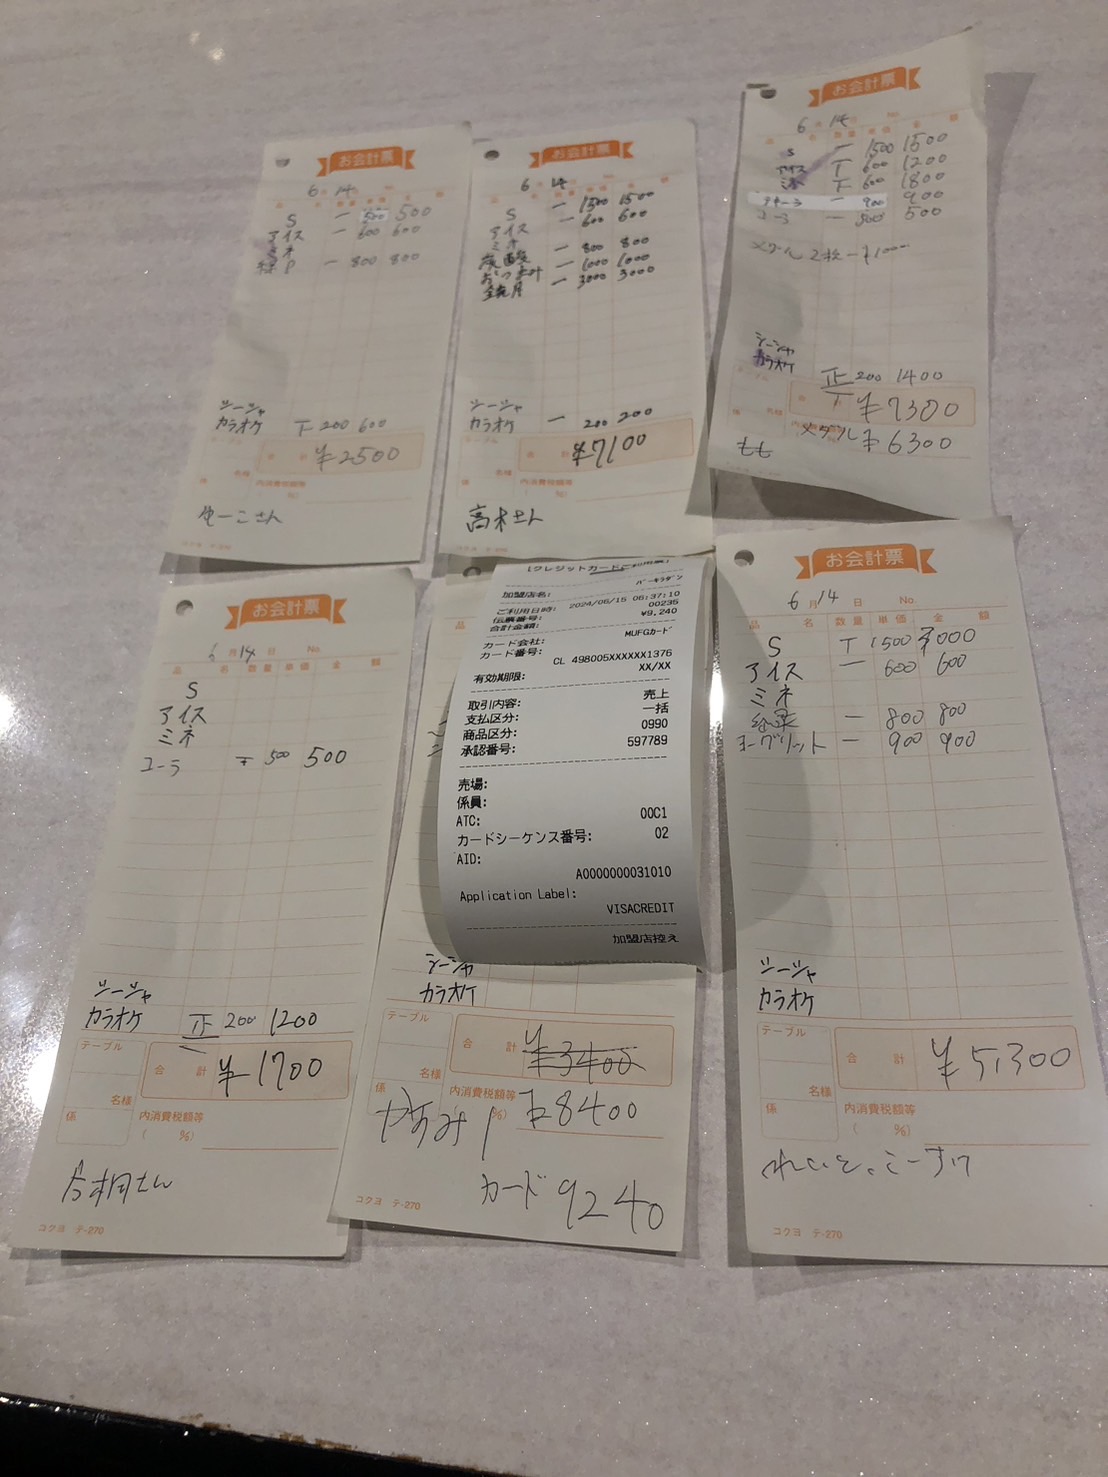 お会計票
6月 14
S 一 500 500
アイス 一 600 600
ミネ
緑P 一 800 800
シージャ
カラオケ 下 200 600
¥2500
名様
内消費税額等
( %)
ゆーこさん
お会計票
6 14
S 一 1500 1500
アイス 一 600 600
ミネ
炭酸 一 800 800
おつまみ 一 1000 1000
鏡月 一 3000 3000
シージャ
カラオケ 一 200 200
¥7100
名様
内消費税額等
( %)
高木さん
お会計票
6月 14
S 一 1500 1500
アイス 丅 600 1200
ミネ 下 600 1800
一 900 900
コーラ 一 500 500
メダル2枚 ー¥1000ー
シージャ
カラオケ 正丅 200 1400
¥7300
メダル ¥6300
もも
お会計票
6月 14日 No.
品 名 数量 単価 金 額
S
アイス
ミネ
コーラ 一 500 500
シージャ
カラオケ 正一 200 1200
テーブル 合 計 ¥1700
名様
係 内消費税額等
( %)
さん
コクヨ テ-270
加盟店名: バーキラダン
ご利用日時: 2024/06/15 06:37:10
伝票番号: 00235
合計金額: ¥9,240
カード会社: MUFGカード
カード番号:
CL 498005XXXXXX1376
有効期限: XX/XX
取引内容: 売上
支払区分: 一括
商品区分: 0990
承認番号: 597789
売場:
係員:
ATC: 00C1
カードシーケンス番号: 02
AID:
A0000000031010
Application Label:
VISACREDIT
加盟店控え
シージャ
カラオケ
テーブル 合 計 ¥3400
名様
係 内消費税額等
%) ¥8400
やすみ
カード 9240
コクヨ テ-270
お会計票
6月 14日 No.
品 名 数量 単価 金 額
S 丅 1500 3000
アイス 一 600 600
ミネ
緑茶 一 800 800
ヨーグリット 一 900 900
シージャ
カラオケ
テーブル 合 計 ¥5,300
名様
係 内消費税額等
( %)
れいと、こーすけ
コクヨ テ-270